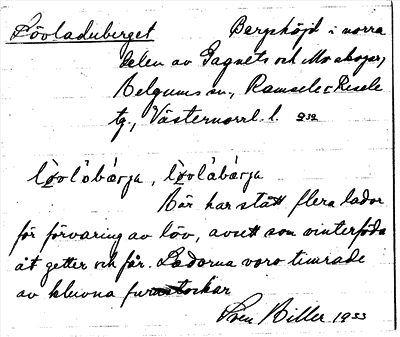 Lövladuberget Bergshöjd i norra
delen av Gagnets och Moskogar,
Helgums sn., Ramsele & Resele
tg., Västernorrl. l.
Här har stått flera lador
för förvaring av löv, avsett som vinterföda
åt getter och får. Ladorna voro timrade
av kluvna furustockar
Sven Biller 1933